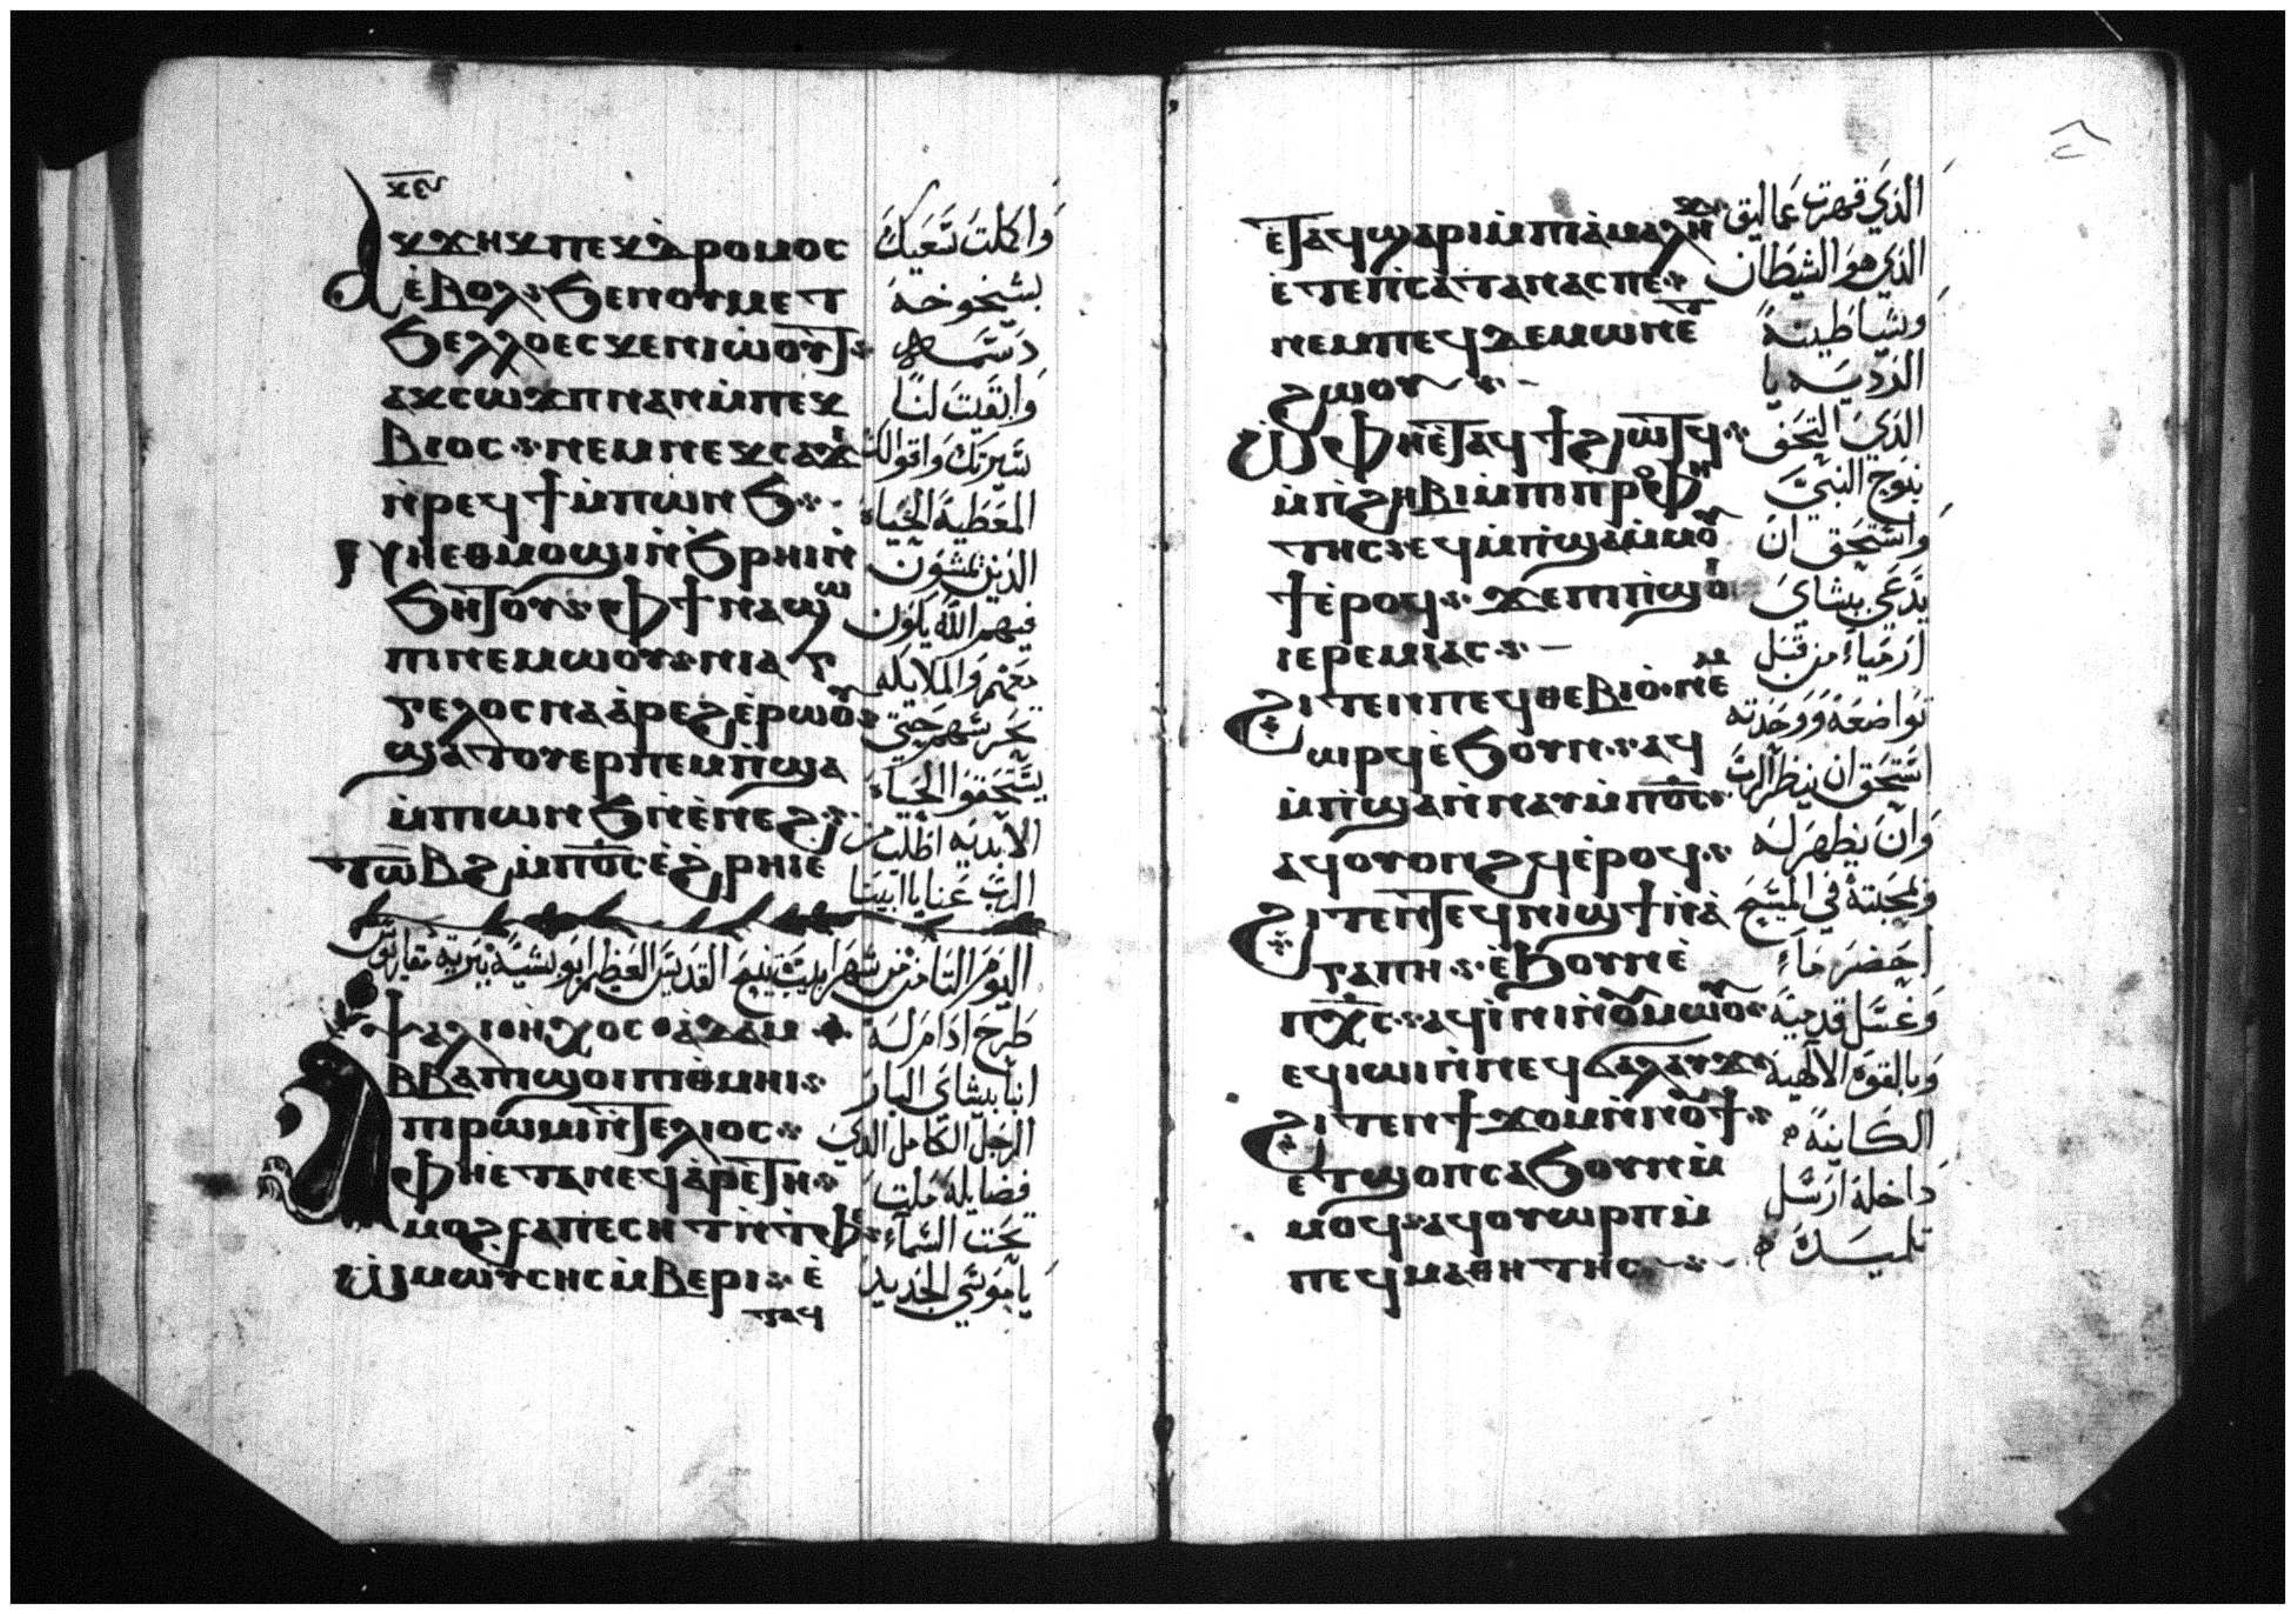 ⲁⲕϫⲏⲕ ⲡⲉⲕⲇⲣⲟⲙⲟⲥ وَاكملتَ سَعيكَ
ⲉ̀ⲃⲟⲗ ϧⲉⲛ ⲟⲩⲙⲉⲧ بشيخوخة
ϧⲉⲗⲗⲟ ⲉⲥⲕⲉⲛⲓⲱⲟⲩϯ دسمه
ⲁⲕⲥⲱϫⲡ ⲛⲁⲛ ⲙ̀ⲡⲉⲕ وَابقيت لنا
ⲃⲓⲟⲥ ⲛⲉⲙ ⲛⲉⲕⲥⲁϫⲓ سيرتك واقوالك
ⲛ̀ⲣⲉϥϯ ⲙ̀ⲡⲱⲛϧ المعطية الحياة
ⲛⲏⲉⲑⲙⲟϣⲓ ⲛ̀ϧⲣⲏⲓ ⲛ̀ الذين يمشون
ϧⲏⲧⲟⲩ ⲫϯ ⲛⲁϣⲱ فيهم الله يكون
ⲡⲓ ⲛⲉⲙⲱⲟⲩ ⲛⲓⲁⲅ معهم والملايكه
ⲅⲉⲗⲟⲥ ⲛⲁⲁ̀ⲣⲉϩ ⲉ̀ⲣⲱⲟⲩ تحرسهم حتي
ϣⲁⲧⲟⲩⲉⲣⲡⲉⲙⲡ̀ϣⲁ يستحقوا الحياة
ⲙ̀ⲡⲱⲛϧ ⲛ̀ⲉ̀ⲛⲉϩ الابديه اطلب من
ⲧⲱⲃϩ ⲙ̀ⲡⲟ̅ⲥ̅ ⲉ̀ϩⲣⲏⲓ ⲉ̀ الرب عنا يا ابينا
اليوم الثامن من شهر ابيب نيح القديس العظيم ابو بشيه ببرية مقاريوس
ⲯⲁⲗⲓ ⲏⲭⲟⲥ ⲁ̀ⲇⲁⲙ طرح ادام له
ⲁⲃⲃⲁ ⲡⲓϣⲟⲓ ⲡⲓⲑⲙⲏⲓ انبا بيشاي البار
ⲡⲓⲣⲱⲙⲓ ⲛ̀ⲧⲉⲗⲓⲟⲥ الرجل الكامل الذي
ⲫⲏⲉ̀ⲧⲁ ⲛⲉϥⲁ̀ⲣⲉⲧⲏ فضايله ملت
ⲙⲟϩ ⲥⲁⲡⲉⲥⲏⲧ ⲛ̀ⲧⲫⲉ تحت السماء
ⲱ̀ ⲙⲱⲩⲥⲏⲥ ⲙ̀ⲃⲉⲣⲓ ⲉ̀ يا موسي الجديد
ⲧⲁϥ
ⲉ̀ⲧⲁϥϣⲁⲣⲓ ⲙ̀ⲡⲓⲁ̀ⲙⲁⲗⲏⲕ الذي قهرت عماليق
ⲉ̀ⲧⲉ ⲡ̀ⲥⲁⲧⲁⲛⲁⲥ ⲡⲉ الذي هو الشيطان
ⲛⲉⲙ ⲡⲉϥⲇⲉⲙⲱⲛ ⲉⲧ وشياطينهُ
ϩⲱⲟⲩ الرديه يا
ⲱ̀ ⲫⲏⲉ̀ⲧⲁϥϯ ϩⲓⲱⲧϥ الذي التحف
ⲙ̀ⲡ̀ϩⲏⲃⲓ ⲙ̀ⲡⲓⲡⲣⲟⲫⲏ بنوح النبي
ⲧⲏⲥ ⲉϥⲙ̀ⲡ̀ϣⲁ ⲙ̀ⲙⲟⲩ واستحق ان
ϯ ⲉ̀ⲣⲟϥ ϫⲉ ⲡⲓϣⲟⲓ يدعي بيشاي
ⲓⲉⲣⲉⲙⲓⲁⲥ ارمياء من قبل
ϩⲓⲧⲉⲛ ⲡⲉϥⲑⲉⲃⲓⲟ ⲛⲉⲙ تواضعه ووحدته
ⲱⲣϥ ⲉ̀ϧⲟⲩⲛ ⲁϥ استحق ان ينظر الرب
ⲙ̀ⲡ̀ϣⲁ ⲛ̀ⲛⲁⲩ ⲙ̀ⲡⲟ̅ⲥ̅ وان يظهر له
ⲁϥⲟⲩⲟⲛϩϥ ⲉ̀ⲣⲟϥ ولمحبته في المسيح
ϩⲓⲧⲉⲛ ⲧⲉϥⲛⲓϣϯ ⲛ̀ⲁ̀ احضر ماء
ⲅⲁⲡⲏ ⲉ̀ϧⲟⲩⲛ ⲉ̀ وغسل قدميه
ⲡⲭ̅ⲥ̅ ⲁϥⲓ̀ⲛⲓ ⲛ̀ⲟⲩⲙⲱⲟⲩ وبالقوة الالهية
ⲉϥⲓⲱⲓ ⲛ̀ⲛⲉϥϭⲁⲗⲁⲩϫ الكاينة
ϩⲓⲧⲉⲛ ϯϫⲟⲙ ⲛ̀ⲛⲟⲩϯ داخله ارسل
ⲉⲧϣⲟⲡ ⲥⲁϧⲟⲩⲛ ⲙ̀ تلميده
ⲙⲟϥ ⲁϥⲟⲩⲱⲣⲡ ⲙ̀
ⲡⲉϥⲙⲁⲑⲏⲧⲏⲥ